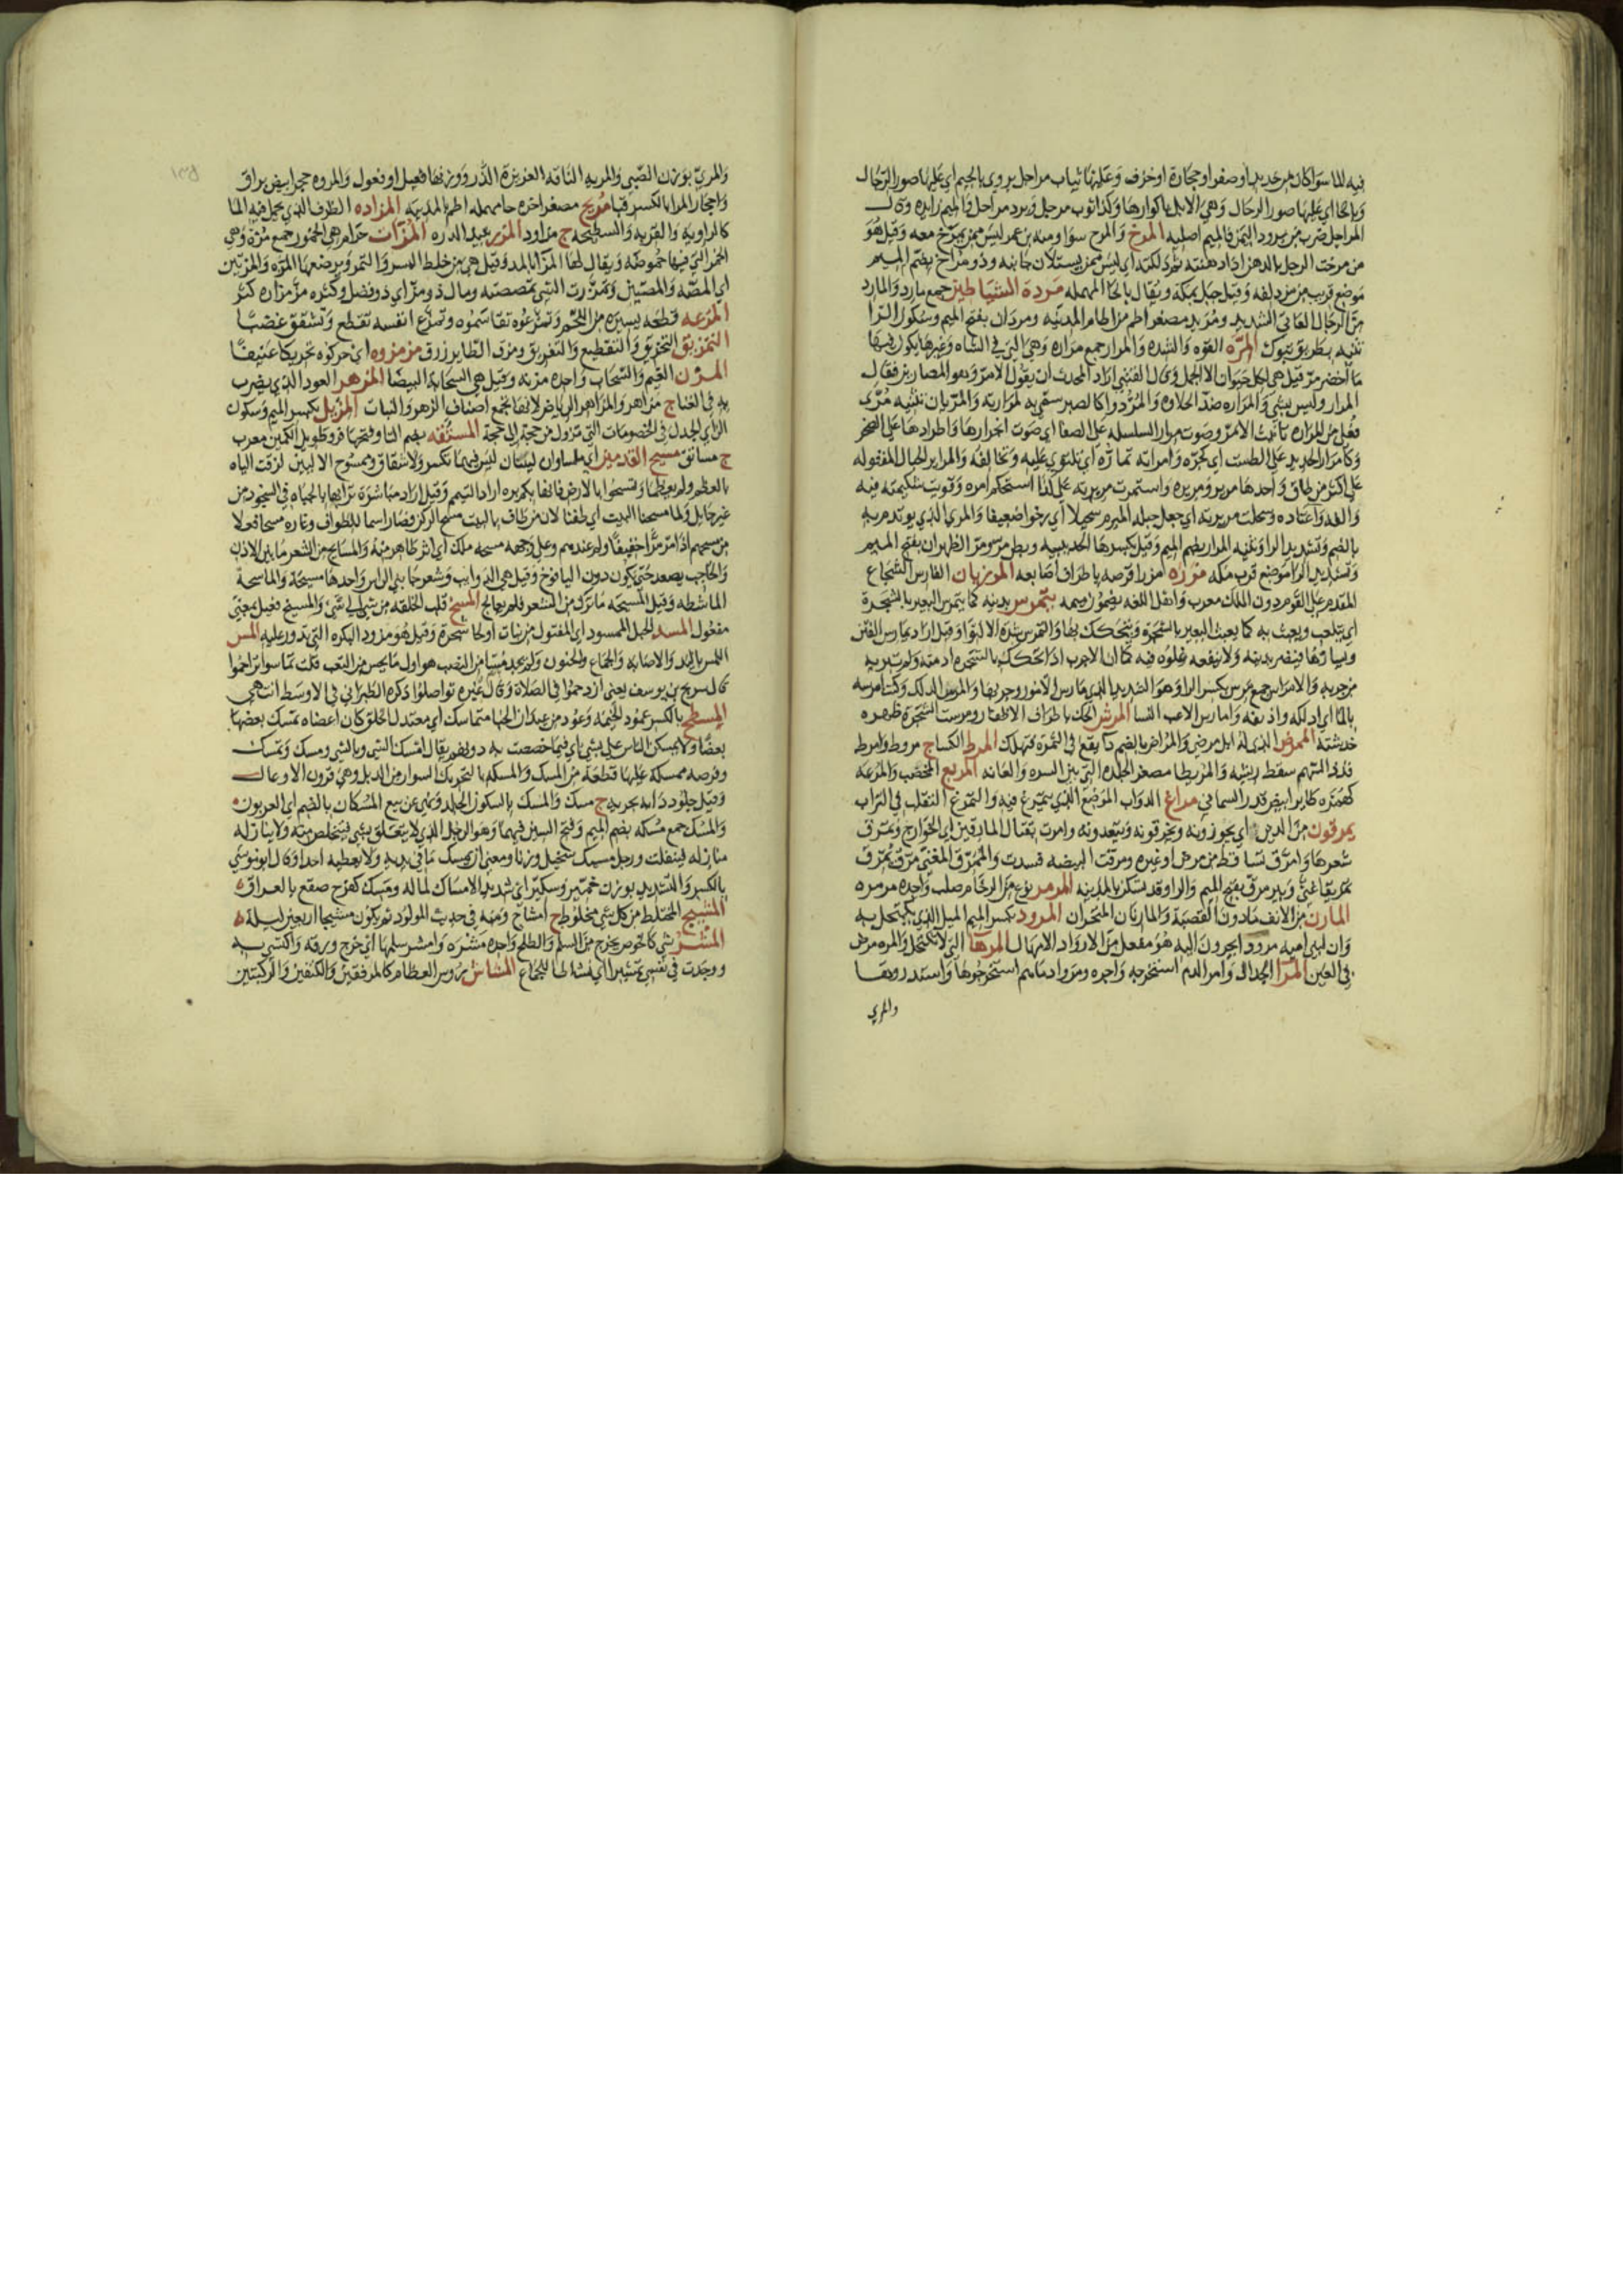 فيه الماء سواكان من حديد او صفر او حجارة او خزف وعليها ثياب مراحل يروى بالجيم اي عليها صور الرجال
وبالحا اي عليها صور الرحال وهي الابل باكوارها وكذا ثوب مرجل وبرد مراجل والميم زايده وقال
المراجل ضرب من برود اليمن فالميم اصليه المرخ والمرح سوا ومنه ابن عمر ليس ممن يمرخ معه وقيل هو
من مرخت الرجل بالدهن اذا دهنته ثم دلكته اي ليس ممن يستلان جانبه وذو مراخ بضم الميم
موضع قريب من مزدلفه وقيل جبل بمكة ويقال بالحا المهمله مردة الشياطين جمع مارد والمارد
من الرجال العاتي الشديد ومريد مصغر اطم من اطام المدينه ومردان بفتح الميم وسكون الرا
ثنيه بطريق تبوك المره القوه والشده والمرار جمع مراره وهي التي في الشاه وغيرها يكون فيها
ما اخضر مر قيل هي لكل حيوان الا الجمل وقال القتبي اراد المحدث ان يقول الامر وهو المصارين فقال
المرار وليس بشي والمراره ضد الحلاوه والمر دوا كالصبر سمي به لمرارته والمريان تثنيه مرى
فعلى من المراره تانيث الامر وصوت مرار السلسله على الصفا اي صوت انجرارها واطرادها على الصخر
وكامرار الحديد على الطست اي كجره وامراته تماره اي تلتوي عليه وتخالفه والمراير الحبال المفتوله
على اكثر من طاق واحدها مرير ومريره واستمرت مريرته على كذا استحكم امره وقويت شكيمته فيه
والفه واعتاده وسحلت مريرته اي جعل حبله المبرم سحيلا اي رخوا ضعيفا والمري الذي يوتدم به
بالضم وتشديد الرا وثنيه المرار بضم الميم وقيل بكسرها الحديبيه وبطن مر ومر الظهران بفتح الميم
وتشديد الرا موضع قرب مكه مرزه امرزا قرصه باطراف اصابعه المرزبان الفارس الشجاع
المقدم على القوم دون الملك معرب واهل اللغه يضمون ميمه يتمرس بدينه كما يتمرس البعير بالشجرة
اي يتلعب ويعبث به كما يعبث البعير بالشجرة ويتحكك بها والتمرس شدة الالتوا وقيل اراد يمارس الفتن
ويشارها فيضر بدينه ولا ينفعه غلوه فيه كما ان الاجرب اذا تحكك بالشجره ادمته ولم تبريه
من جربه والامراس جمع مرس بكسر الرا وهو الشديد الذي مارس الامور وجربها والمرس الدلك وكنت امرسه
بالما اي ادلكه واذيفه وامارس الاعب النسا المرش الحك باطراف الاظفار ومرست الشجرة ظهره
خدشته الممرض الذي له ابل مرضى والمراض بالضم دا يقع في الثمرة فتهلك المرط الكسا ج مروط وامرط
قذذ السهم سقط ريشه والمريطا مصغر الجلده التي بين السره والعانه المريع المخصب والمرعه
كهمزه طاير ابيض قدر السماني مراغ الدواب الموضع الذي يتمرغ فيه والتمرغ التقلب في التراب
يمرقون من الدين اي يجوزونه ويخرقونه ويتعدونه وامرت بقتال المارقين اي الخوارج وتمرق
شعرها وامرق تساقط من مرض او غيره ومرقت البيضه فسدت والممرق المغني مرق يمرق
تمريقا غنى وبير مرق بفتح الميم والرا وقد تسكن بالمدينه المرمر نوع من الرخام صلب واحده مرمره
المارن من الانف مادون القصبة والمارنان المنخران المرود بكسر الميم الميل الذي يكتحل به
وان لبني اميه مرودا يجرون اليه هو مفعل من الارواد الامهال المرها التي لا تكتحل والمره مرض
في العين المرا الجدال وامر الدم استخرجه واجره ومروا دماهم استخرجوها واستدروها
والمري
والمري بوزن الصبي والمريه الناقه الغزيرة الدر ووزنها فعيل او فعول والمروه حجر ابيض براق
واحجار المرا بالكسر قبا مريح مصغر اخره حا مهمله اطم بالمدينه المزاده الظرف الذي يحمل فيه الما
كالراويه والقربه والسطيحه ج مزاود المزر نبيذ الذره المزات حرام هي الخمور جمع مزة وهي
الخمر التي فيها حموضه ويقال لها المزا بالمد وقيل هي من خليط البسر والتمر ويرضعها المزه والمزتين
اي المصه والمصتين وتمززت الشي تمصصته ومال ذو مز اي ذو فضل وكثره مز مزازه كثر
المزعه قطعه يسيره من اللحم وتمزعوه تقاسموه وتمزع انفه تقطع وتشقق غضبا
التمزيق التخريق والتقطيع والتفريق ومزق الطاير زرق مزمزوه اي حركوه تحريكا عنيفا
المزن الغيم والسحاب واحده مزنه وقيل هي السحابه البيضا المزهر العود الذي يضرب
به في الغناج مزاهر والمزاهر الرياض لانها تجمع اصناف الزهر والنبات المزيل بكسر الميم وسكون
الزاي الجدل في الخصومات التي تزول من حجة الى حجة المستقه بضم التا وفتحها فرو طويل الكمين معرب
ج مساتق مسيح القدمين اي ملساوان لينتان ليس فيهما تكسر ولا شقاق وممسوح الاليتين لزقت الياه
بالعظم ولم يعظما وتمسحوا بالارض فانها بكم بره اراد التيمم وقيل اراد مباشرة ترابها بالجباه في السجود من
غير حايل ولما مسحنا البيت اي طفنا لان من طاف بالبيت مسح الركن فصار اسما للطواف وغاره مسحا فعلا
من مسحهم اذا مر مرا خفيفا ولم عندهم وعلى وجهه مسحه ملك اي اثر ظاهر منه والمسايح من الشعر ما بين الاذن
والحاجب يصعد حتى يكون دون اليافوخ وقيل هي الذوايب وشعر جانبي الراس واحدها مسيحة والماسحة
الماشطه وقيل المسيحه ما ترك من الشعر فلم يعالج المسخ قلب الخلقه من شي الى شي والمسيخ فعيل بمعنى
مفعول المسد الحبل الممسود اي المفتول من نبات اولحا شجرة وقيل هو مرود البكره التي تدور عليه المس
اللمس باليد والاصابه والجماع والجنون ولم يجد مسا من النصب هو اول ما يحس من التعب قلت تماسوا تزاحموا
قال سريج بن يوسف يعني ازدحموا في الصلاة وقال غيره تواصلوا ذكره الطبراني في الاوسط انتهى
المسطح بالكسر عمود الخيمه وعود من عيدان الخبا متماسك اي معتدل الخلق كان اعضاه تمسك بعضها
بعضا ولا يمسكن الناس علي بشي اي فيما خصصت به دونهم يقال امسكت الشي وبالشي ومسكت وتمسكت
وفرصه ممسكه عليها قطعة من المسك والمسكه بالتحريك السوار من الذبل وهي قرون الاوعال
وقيل جلود دابه بحريه ج مسك والمسك بالسكون الجلد ونهي عن بيع المسكان بالضم اي العربون
والمسك جمع مسكه بضم الميم وفتح السين فيهما وهو الرجل الذي لا يتعلق بشي فيتخلص منه ولا ينازله
منازل فيفلت ورجل مسيك بخيل وزنا ومعنى اي يمسك ما في يديه ولا يعطيه احدا وقال ابو موسى
بالكسر والتشديد بوزن خمير وسكير اي شديد الامساك لماله ومسك كفرح صقع بالعراق
المشيج المختلط من كل شي مخلوط ج امشاج ومنه في حديث المولود ثم يكون مشيجا اربعين ليلة
المشر شي كالخوص يخرج من السلم والطلح واحده مشره وامشر سلمها اي خرج ورقه واكتسى به
ووجدت في نفسي تمشيرا اي نشاطا للجماع المشاش روس العظام كالمرفقين والكتفين والركبتين